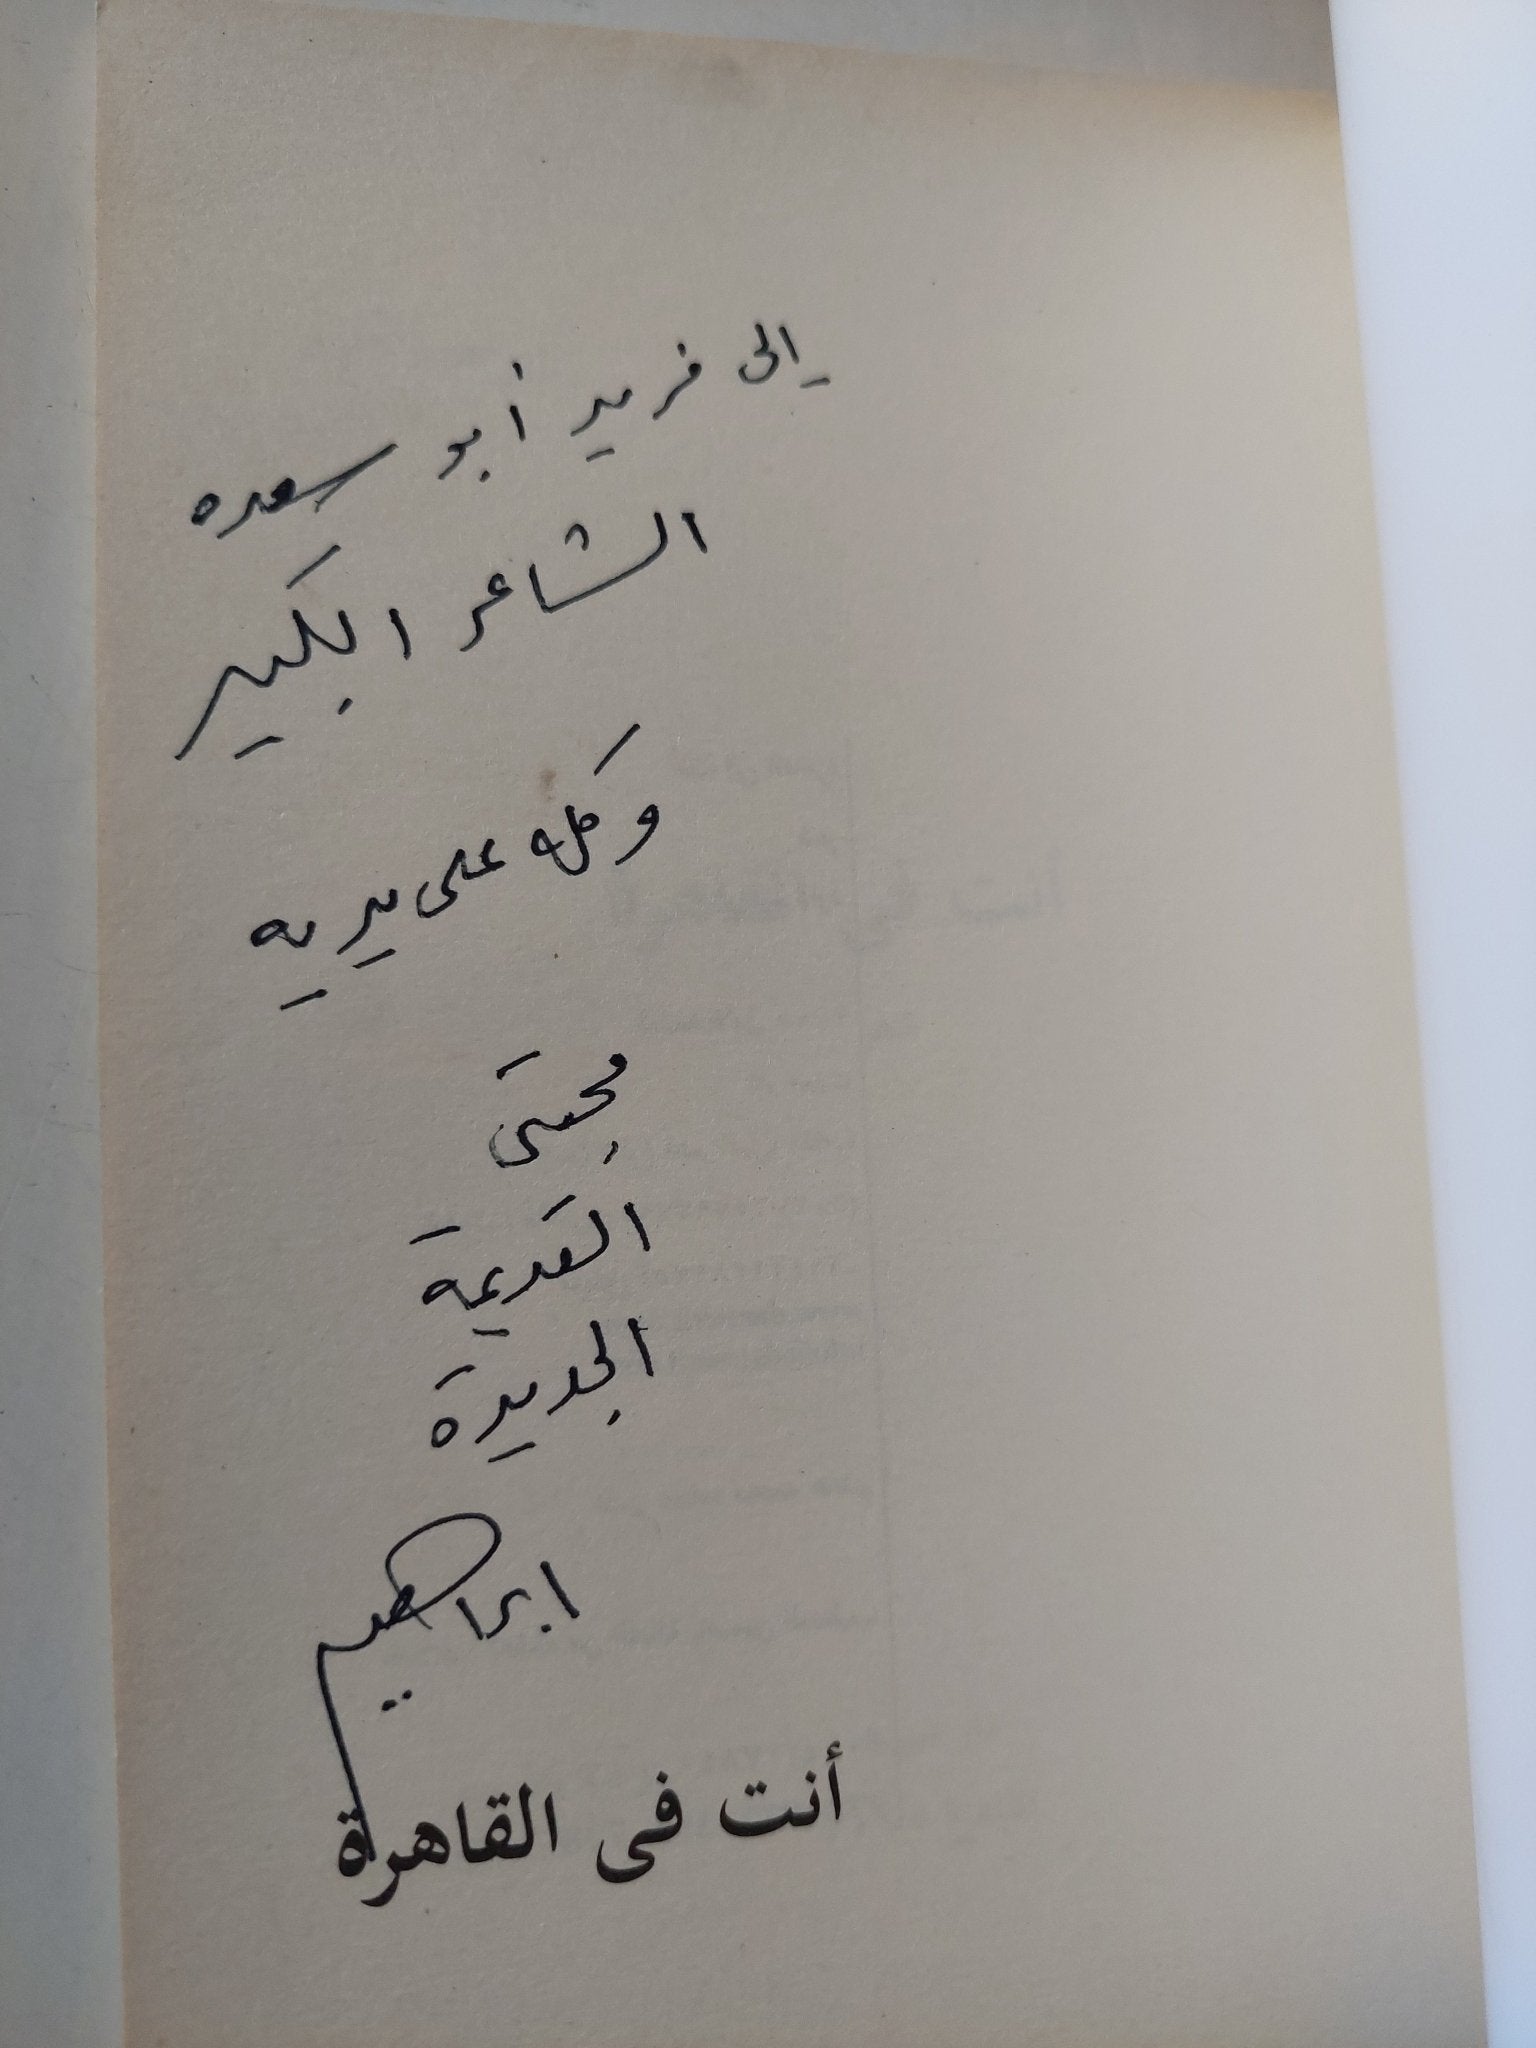 إلى فريد أبو سعده
الشاعر الكبير
وكله على يديه
محبتى
القديمة
الجديدة
ابراهيم
أنت فى القاهرة